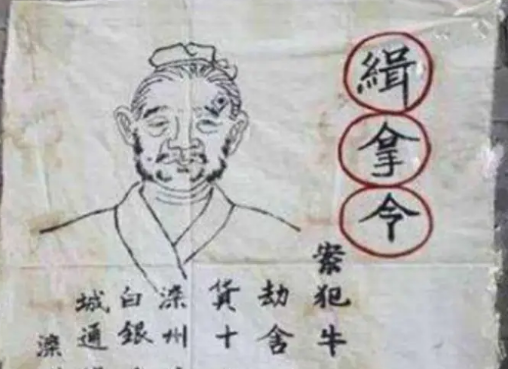 緝拿令
案犯牛
劫舍
貨十
滦州
白銀
城通
滦